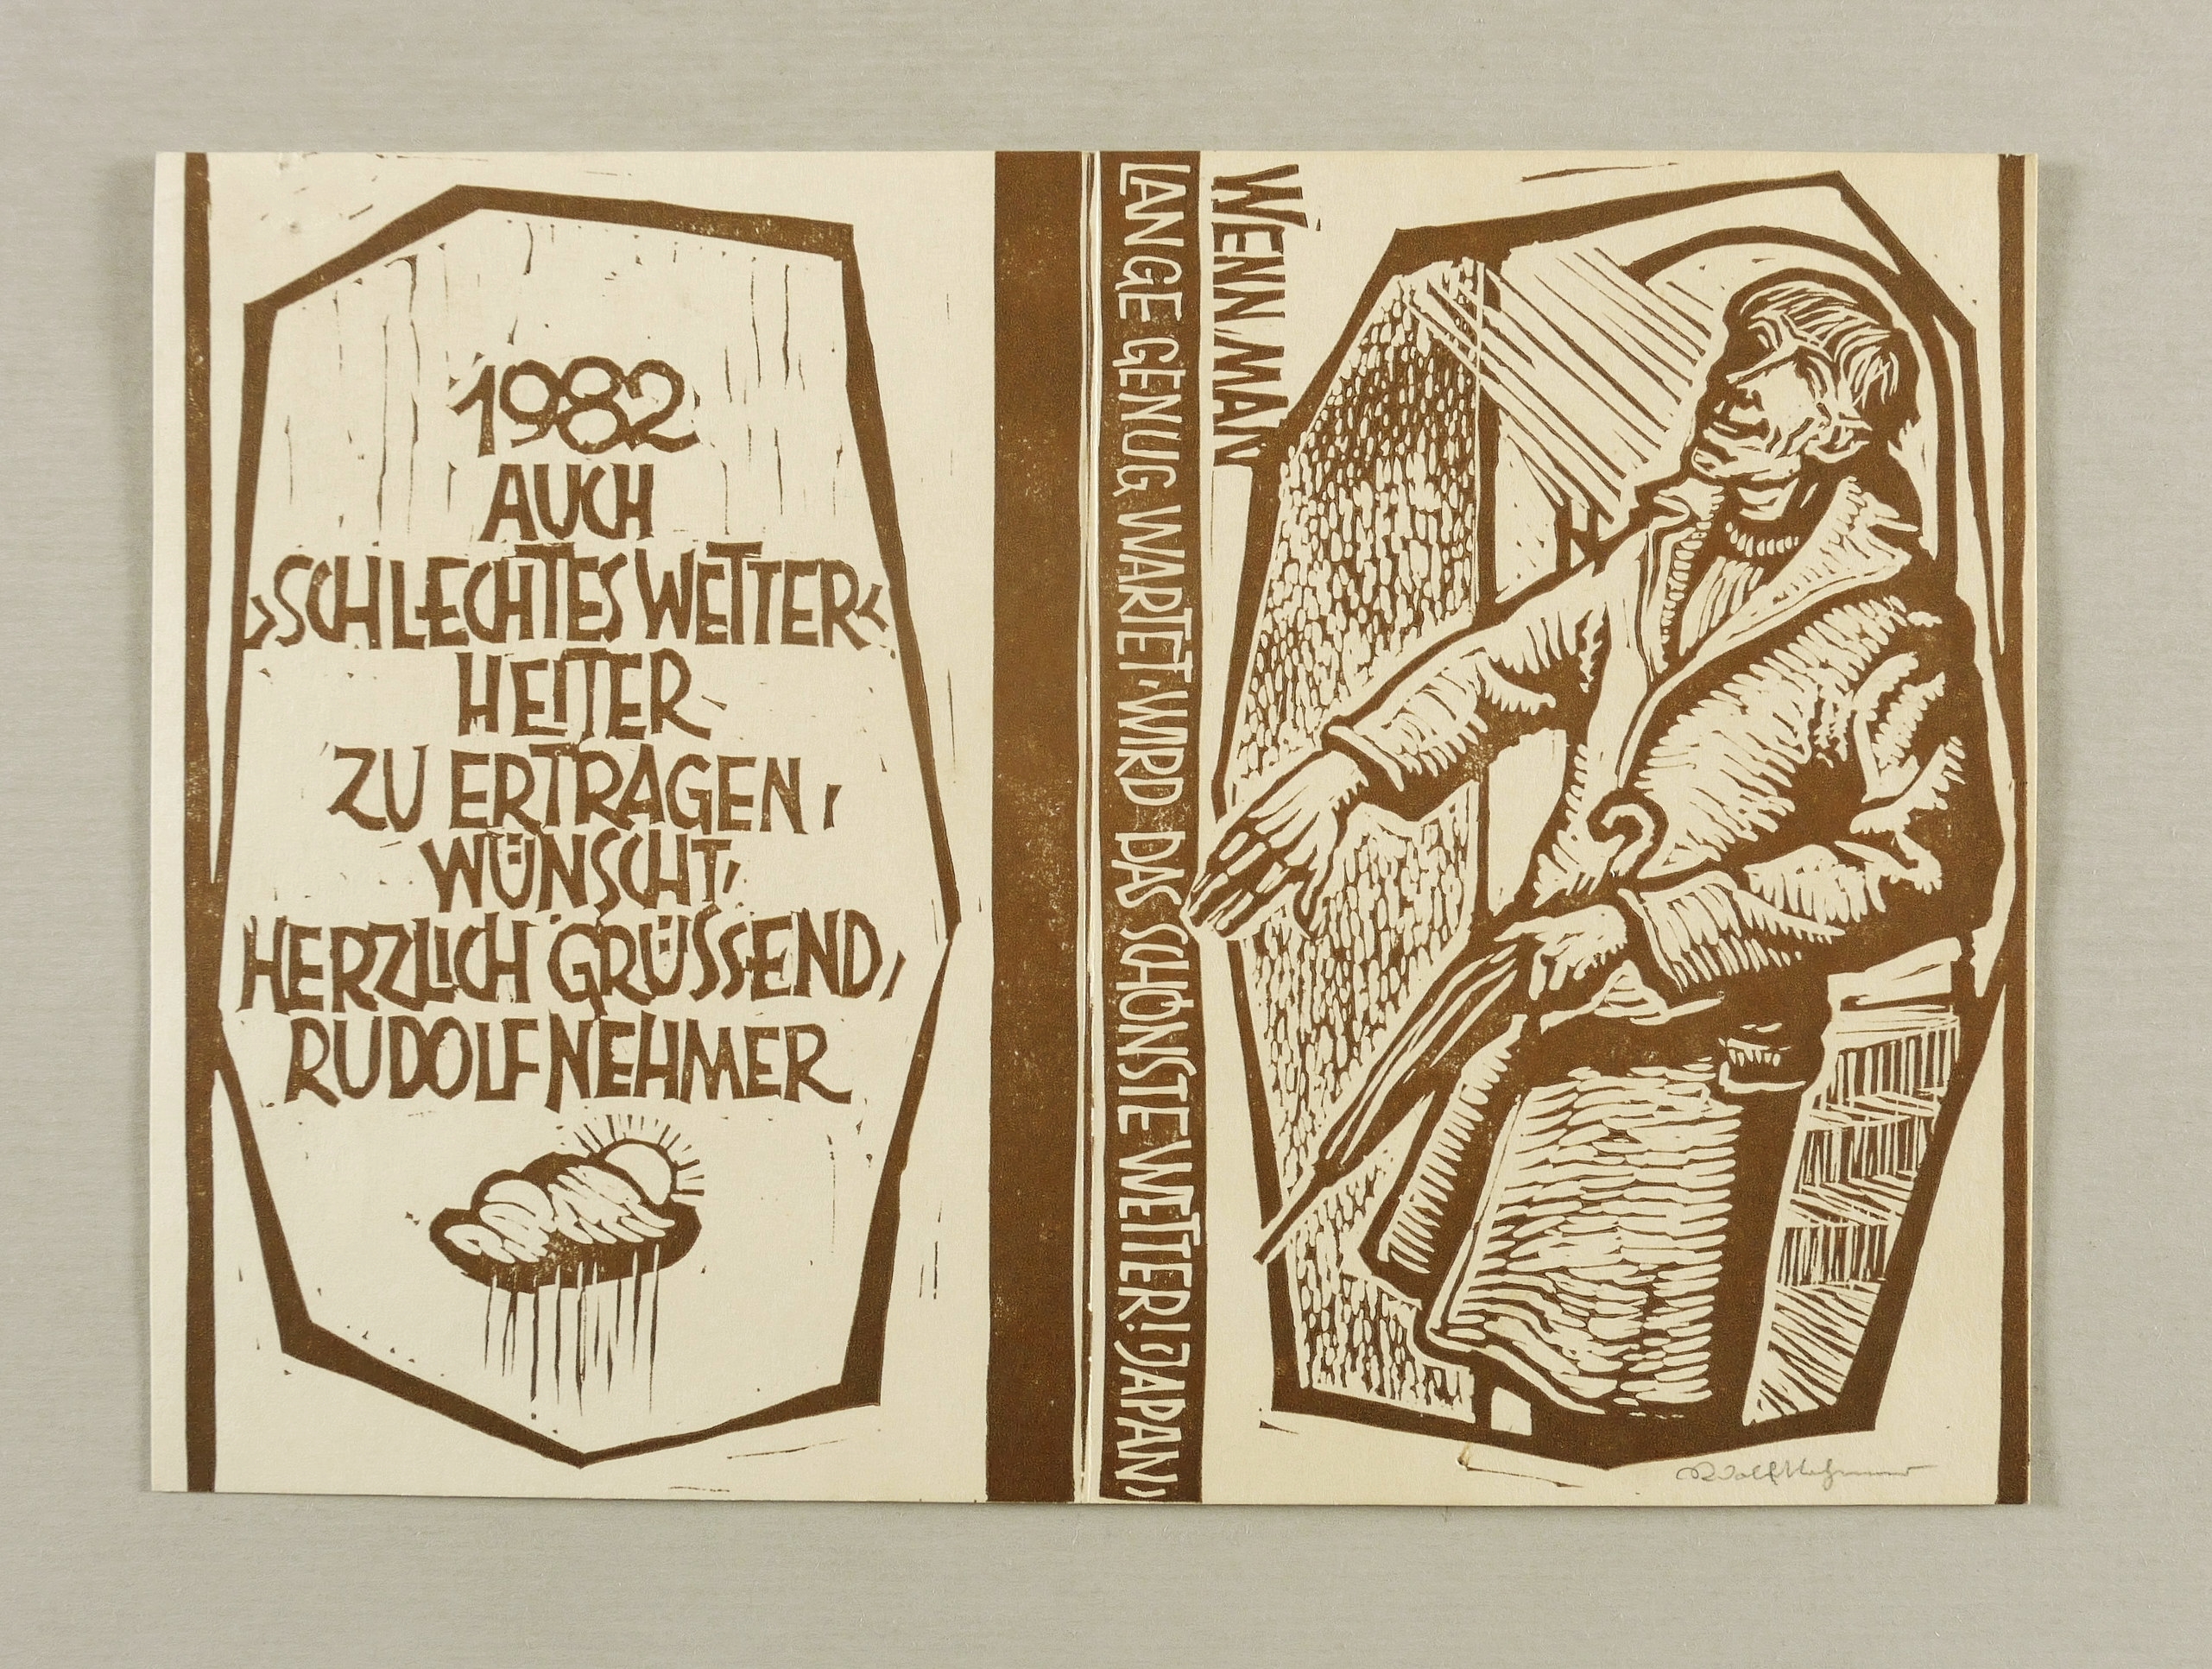 1982
AUCH
›SCHLECHTES WETTER‹
HEITER
ZU ERTRAGEN,
WÜNSCHT,
HERZLICH GRÜSSEND,
RUDOLF NEHMER
WENN MAN
LANGE GENUG WARTET, WIRD DAS SCHÖNSTE WETTER! (JAPAN)
Rudolf Nehmer